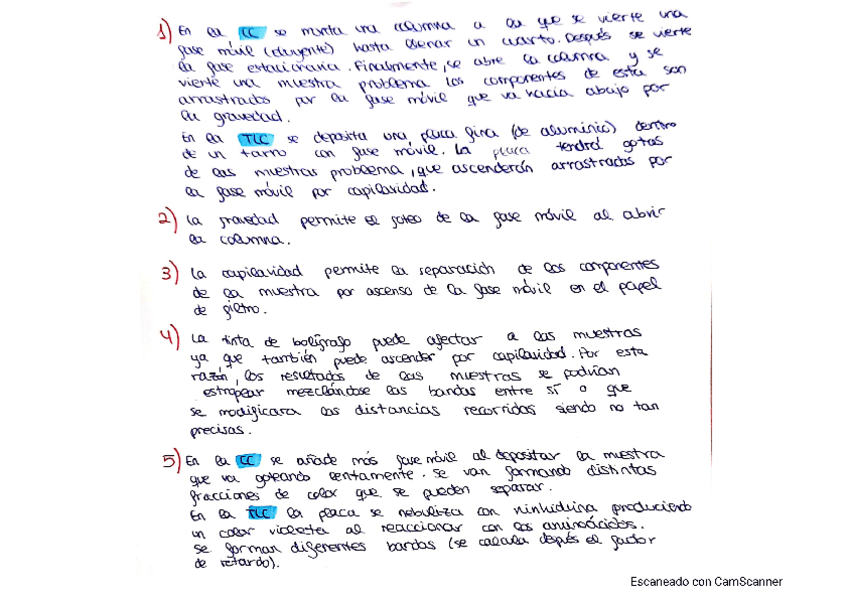 1) En la CC se monta una columna a la que se vierte una
fase móvil (eluyente) hasta llenar un cuarto. Después se vierte
la fase estacionaria. Finalmente, se abre la columna y se
vierte una muestra problema los componentes de esta son
arrastrados por la fase móvil que va hacia abajo por
la gravedad.
En la TLC se deposita una placa fina (de aluminio) dentro
de un tarro con fase móvil. La placa tendrá gotas
de las muestras problema, que ascenderán arrastrados por
la fase móvil por capilaridad.
2) La gravedad permite el goteo de la fase móvil al abrir
la columna.
3) La capilaridad permite la separación de los componentes
de la muestra por ascenso de la fase móvil en el papel
de filtro.
4) La tinta de bolígrafo puede afectar a las muestras
ya que también puede ascender por capilaridad. Por esta
razón, los resultados de las muestras se podrían
estropear mezclándose las bandas entre sí o que
se modificara las distancias recorridas siendo no tan
precisas.
5) En la CC se añade más fase móvil al depositar la muestra
que va goteando lentamente. Se van formando distintas
fracciones de color que se pueden separar.
En la TLC la placa se nebuliza con ninhidrina produciendo
un color violeta al reaccionar con los aminoácidos.
Se forman diferentes bandas (se calcula después el factor
de retardo).
Escaneado con CamScanner